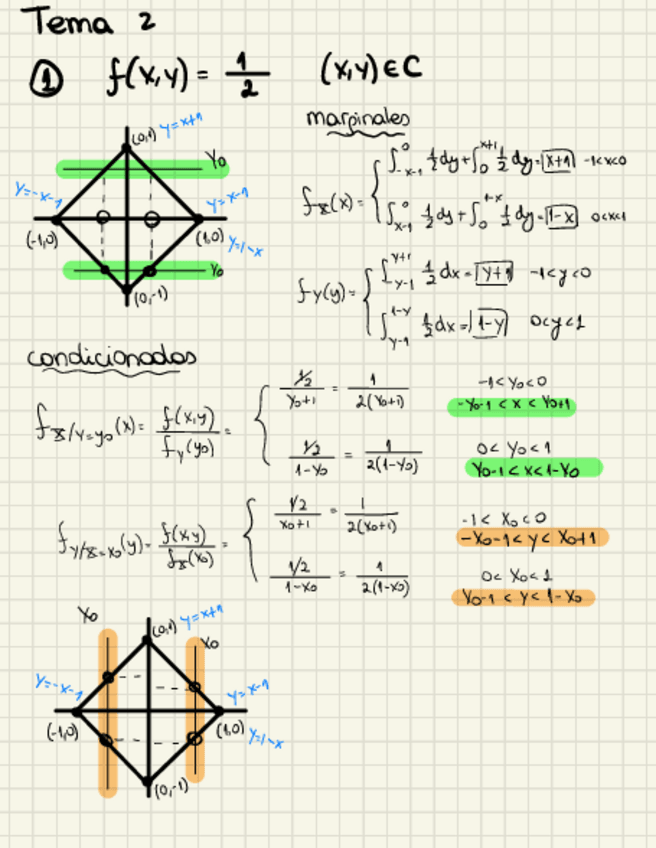 Tema 2
① f(x,y) = 1/2 (x,y) ∈ C
marginales
(0,1) y=x+1
y0
y=-x-1 y=x-1
(-1,0) (1,0) y=1-x
y0
(0,-1)
fX(x) = { ∫_{-x-1}^{0} 1/2 dy + ∫_{0}^{x+1} 1/2 dy = x+1 -1<x<0
∫_{x-1}^{0} 1/2 dy + ∫_{0}^{1-x} 1/2 dy = 1-x 0<x<1
fY(y) = { ∫_{-y-1}^{y+1} 1/2 dx = y+1 -1<y<0
∫_{y-1}^{1-y} 1/2 dx = 1-y 0<y<1
condicionados
fX/Y=y0(x) = f(x,y)/fY(y0) = { 1/2/y0+1 = 1/2(y0+1) -1<y0<0
-y0-1 < x < y0+1
1/2/1-y0 = 1/2(1-y0) 0<y0<1
y0-1 < x < 1-y0
fY/X=x0(y) = f(x,y)/fX(x0) = { 1/2/x0+1 = 1/2(x0+1) -1<x0<0
-x0-1 < y < x0+1
1/2/1-x0 = 1/2(1-x0) 0<x0<1
x0-1 < y < 1-x0
x0 (0,1) y=x+1
x0
y=-x-1 y=x-1
(-1,0) (1,0) y=1-x
(0,-1)